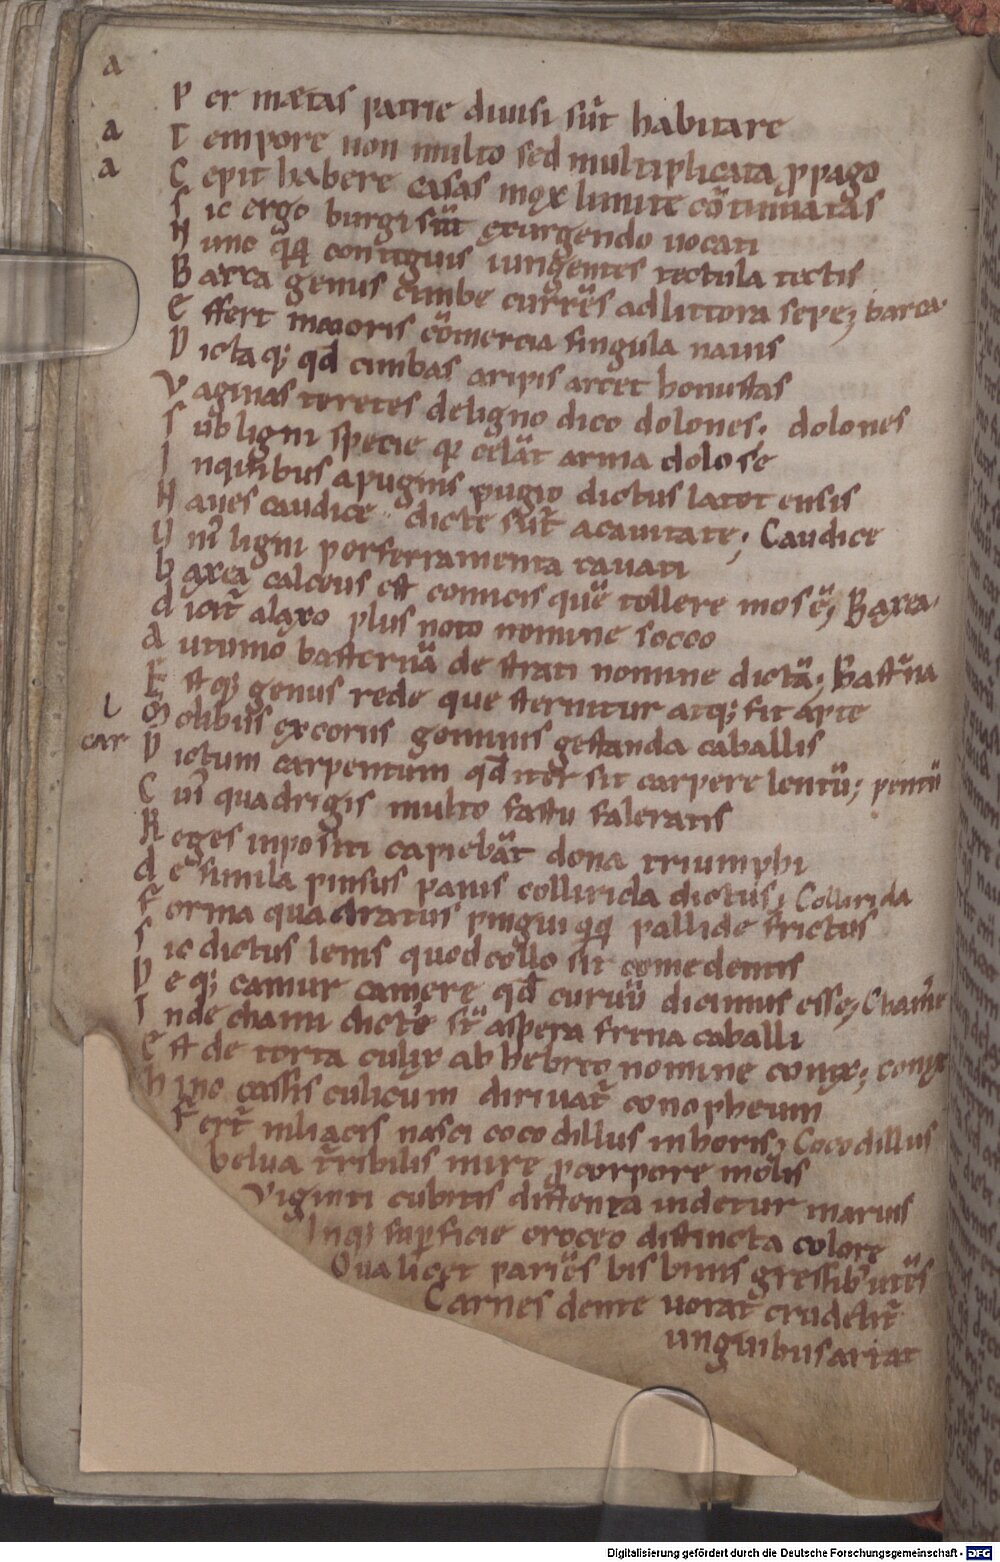 a
P er mætas patrie diuisi sūt habitare
a T empore non multo sed multiplicata ꝓpago
a C epit habere casas moꝫ limite cōtinuatas
S ic ergo burgi sūt exurgendo uocati
H unc q̄q̄ contiguis iungentes tectula tectis
B arca genus cimbe currēs ad littora sepe; barca
E ffert maioris cōmercia singula nauis
D icta q; qđ cimbas aripis arcet honustas
V aginas teretes de ligno dico dolones. dolones
S ub ligni specie qꝫ cēlāt arma dolose
I nquilibus a pugnis pugio dictus latet ensis
N aues caudice dicte sūt a cauitate; Caudice
U ni ligni per ferramenta cauati
b axea calceus est comicis quē tollere mos ē; Baxea.
d icit̄ alaxo plus noto nomine socco
a utumo basternā de strati nomine dictā; Bast̄na
E stq; genus rede que sternitur atq; fit arte
l M ollibus ex coriis geminis gestanda caballis
car D ictum carpentum qđ iter sit carpere lentū; pentū
C ui quadrigis multo fastu faleratis
R eges inpositi capiebāt dona triumphi
d e simila pinsus panis collirida dictus; Collirida
F orma quadratus pingui q̄q̄ pallide frictus
S ic dictus lenis quod collo sit comedentis
D e q; camur camere qđ curuū dicimus esse; Cham̄e
I nde chami dicte st̄ aspera frena caballi
E st de torta culix ab hebreo nomine conix; conix
h inc cassis culicum diriuat̄ conopheum
F ert̄ niliacis nasci cocodillus in horis; Cocodillus
Belua t̄ribilis mire ꝓ corpore molis
Viginti cubitis distenta uidetur marius
Inq; suꝑficie croceo distincta colore
Qua licet pariēs bis binis gressib; utēs
Carnes dente uorat crudelit̄
unguibus ariat
Digitalisierung gefördert durch die Deutsche Forschungsgemeinschaft - DFG